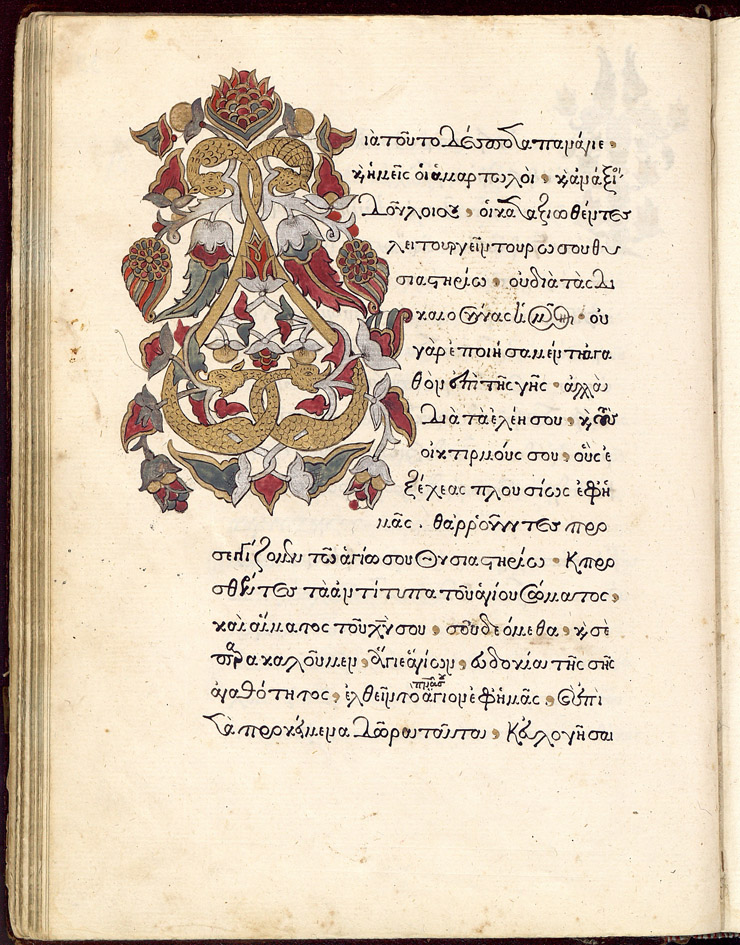 Διὰ τοῦτο Δέσποτα πανάγιε,
κ̀ ἡμεῖς οἱ ἁμαρτωλοὶ, κ̀ ἀνάξιοι
Δοῦλοι σου, οἱ καταξιωθέντες
λειτουργεῖν τουρω σου θυ
σιαστηρίω, οὐ διὰ τὰς Δι
καιοσύνας ἡμῶν, οὐ
γὰρ ἐποιήσαμέν τι ἀγα
θὸν ἐπὶ τῆς γῆς, ἀλλὰ
Διὰ τὰ ἐλέη σου, κ̀ τοὺς
οἰκτιρμούς σου, οὓς ἐ
ξέχεας πλουσίως ἐφ' ἡ
μᾶς. θαρροῦντες προ
σεγγίζομεν τῶ ἁγίω σου θυσιαστηρίω. Κ προ
σθέντες τὰ ἀντίτυπα τοῦ ἁγίου σώματος,
καὶ αἵματος τοῦ χῦ σου, σοῦ δεόμεθα, κ̀ σὲ
παρακαλοῦμεν, ἅγιε ἁγίων, εὐδοκία τῆς σῆς
ἀγαθότητος, ἐλθεῖν τὸ πνᾶ σου τὸ ἅγιον ἐφ' ἡμᾶς, κ̀ ἐπὶ
τὰ προκείμενα Δῶρα ταῦτα, Κ εὐλογῆσαι